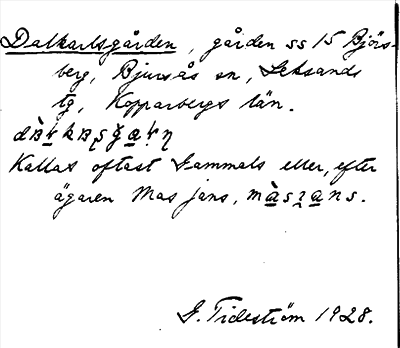 Dalkarlsgården, gården ss 15 Björs-
berg, Bjursås sn, Leksands
tg, Kopparbergs län.
Kallas oftast Gammals eller, efter
ägaren Mas Jans, màsʒans.
G. Tideström 1928.